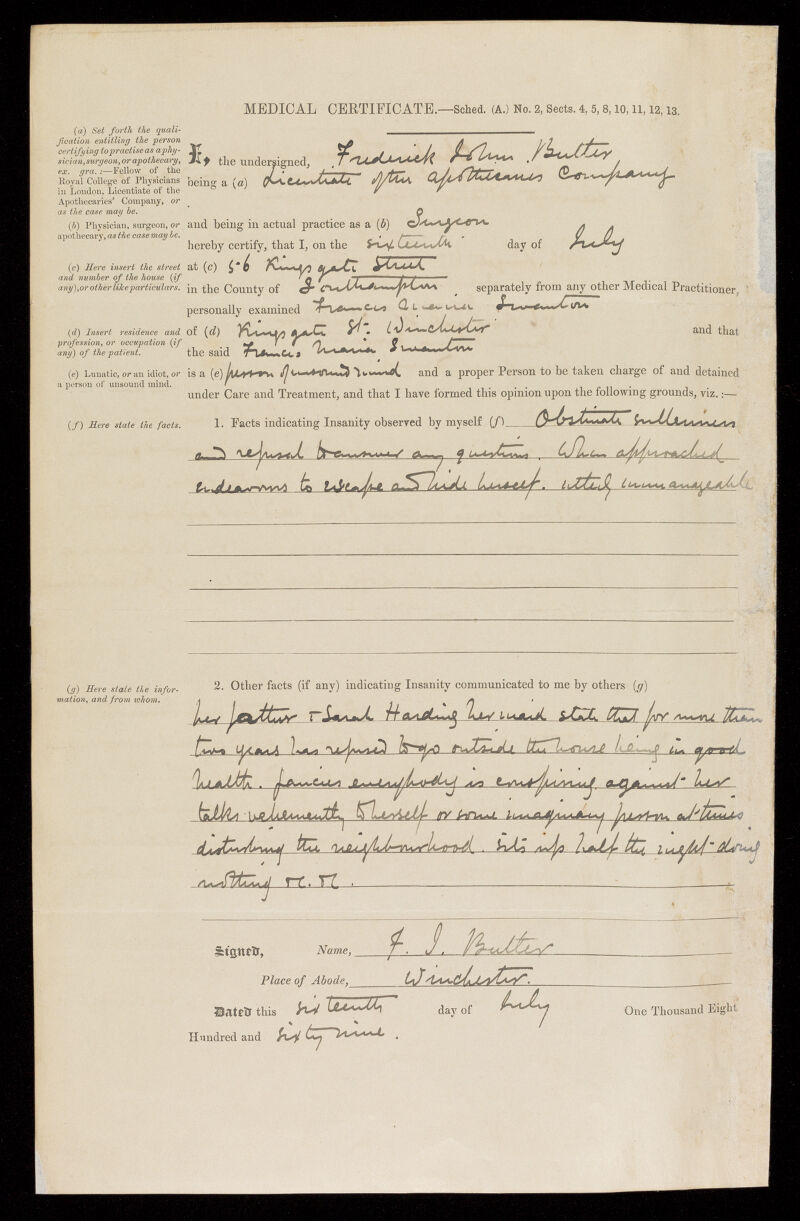 MEDICAL CERTIFICATE.—Sched. (A.) No. 2, Sects. 4, 5, 8, 10, 11, 12, 13.
(a) Set forth the quali-
fication entitling the person
certifying to practise as a phy-
sician, surgeon, or apothecary,
ex. gra. :—Fellow of the
Royal College of Physicians
in London, Licentiate of the
Apothecaries' Company, or
as the case may be.
I, the undersigned, Frederick John Butler
being a (a) Licentiate of the Apothecaries Company
(b) Physician, surgeon, or
apothecary, as the case may be.
and being in actual practice as a (b) Surgeon
hereby certify, that I, on the sixteenth day of July
(c) Here insert the street
and number of the house (if
any), or other like particulars.
at (c) 56 Kingsgate Street
in the County of Southampton, separately from any other Medical Practitioner,
personally examined Frances Maria Swanton
(d) Insert residence and
profession, or occupation (if
any) of the patient.
of (d) Kingsgate St. Winchester and that
the said Frances Maria Swanton
(e) Lunatic, or an idiot, or
a person of unsound mind.
is a (e) person of unsound mind and a proper Person to be taken charge of and detained
under Care and Treatment, and that I have formed this opinion upon the following grounds, viz. :—
(f) Here state the facts.
1. Facts indicating Insanity observed by myself (f) Obstinate sullenness
and refusal to answer any questions. When approached
endeavours to escape and hide herself. utterly unmanageable
(g) Here state the infor-
mation, and from whom.
2. Other facts (if any) indicating Insanity communicated to me by others (g)
her father & Sarah Harding her maid state that for more than
two years has refused to go outside the house being in good
health. fancies everybody is conspiring against her
talks vehemently to herself or some imaginary person at times
disturbing the neighbourhood. Sits up half the night doing
nothing &c. &c.
Signed, Name, F. J. Butler
Place of Abode, Winchester.
Dated this sixteenth day of July One Thousand Eight
Hundred and Sixty nine.